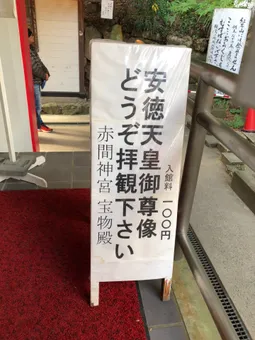 安徳天皇御尊像
どうぞ拝観下さい
入館料 一〇〇円
赤間神宮 宝物殿